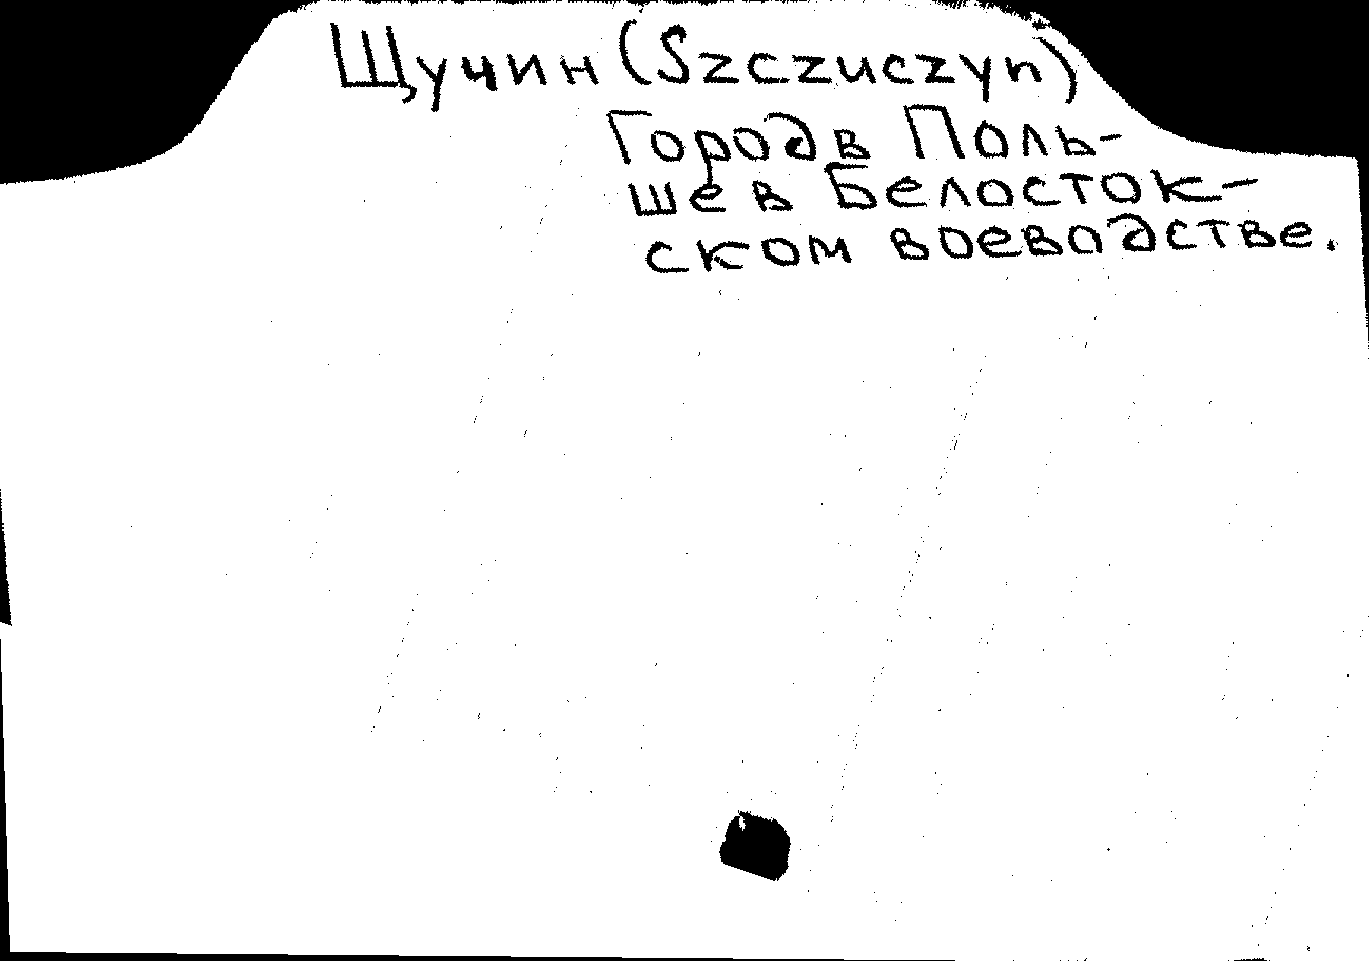 Щучин (Szczuczyn)
Город в Поль-
ше в Белосток-
ском воеводстве.